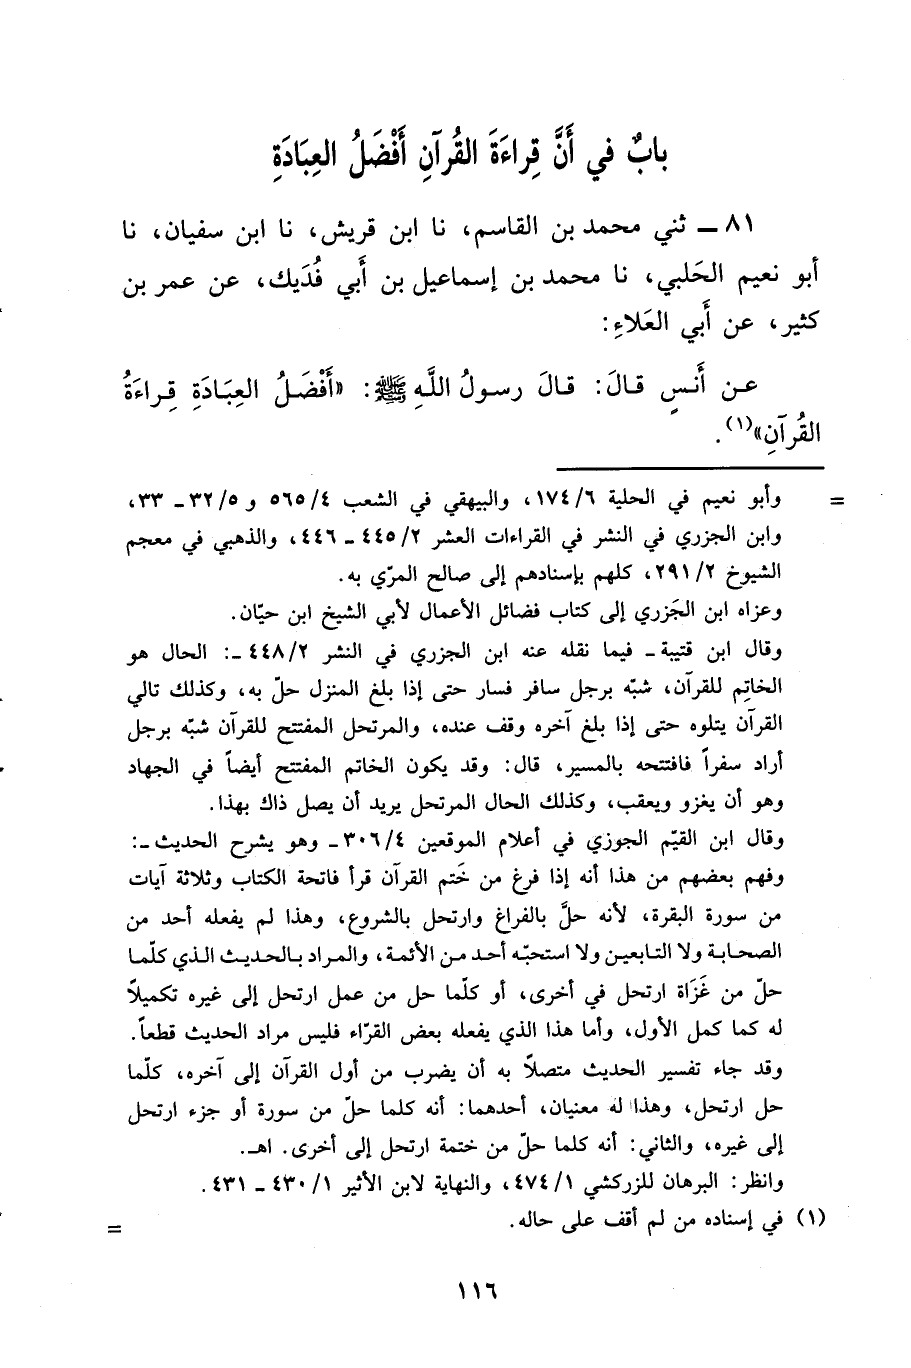 بابٌ في أَنَّ قِراءَةَ القُرآنِ أَفْضَلُ العِبَادَةِ
٨١ ــ ثني محمد بن القاسم، نا ابن قريش، نا ابن سفيان، نا
أبو نعيم الحَلبي، نا محمد بن إسماعيل بن أَبي فُدَيك، عن عمر بن
كثير، عن أَبي العَلاءِ:
عن أَنسٍ قالَ: قالَ رسولُ اللَّهِ ﷺ: «أَفْضَلُ العِبَادَةِ قِراءَةُ
القُرآنِ»(١).
= وأبو نعيم في الحلية ١٧٤/٦، والبيهقي في الشعب ٥٦٥/٤ و ٣٢/٥ ـ ٣٣،
وابن الجزري في النشر في القراءات العشر ٤٤٥/٢ ـ ٤٤٦، والذهبي في معجم
الشيوخ ٢٩١/٢، كلهم بإسنادهم إلى صالح المرّي به.
وعزاه ابن الجَزري إلى كتاب فضائل الأعمال لأبي الشيخ ابن حيّان.
وقال ابن قتيبة ـ فيما نقله عنه ابن الجزري في النشر ٤٤٨/٢ ـ: الحال هو
الخاتِم للقرآن، شبّه برجل سافر فسار حتى إذا بلغ المنزل حلّ به، وكذلك تالي
القرآن يتلوه حتى إذا بلغ آخره وقف عنده، والمرتحل المفتتح للقرآن شبّه برجل
أراد سفراً فافتتحه بالمسير، قال: وقد يكون الخاتم المفتتح أيضاً في الجهاد
وهو أن يغزو ويعقب، وكذلك الحال المرتحل يريد أن يصل ذاك بهذا.
وقال ابن القيّم الجوزي في أعلام الموقعين ٣٠٦/٤ ـ وهو يشرح الحديث ـ:
وفهم بعضهم من هذا أنه إذا فرغ من خَتم القرآن قرأ فاتحة الكتاب وثلاثة آيات
من سورة البقرة، لأنه حلَّ بالفراغ وارتحل بالشروع، وهذا لم يفعله أحد من
الصحابة ولا التابعين ولا استحبّه أحد من الأئمة، والمراد بالحديث الذي كلّما
حلّ من غَزَاة ارتحل في أخرى، أو كلّما حل من عمل ارتحل إلى غيره تكميلاً
له كما كمل الأول، وأما هذا الذي يفعله بعض القرّاء فليس مراد الحديث قطعاً.
وقد جاء تفسير الحديث متصلاً به أن يضرب من أول القرآن إلى آخره، كلّما
حل ارتحل، وهذا له معنيان، أحدهما: أنه كلما حلّ من سورة أو جزء ارتحل
إلى غيره، والثاني: أنه كلما حلّ من ختمة ارتحل إلى أخرى. اهـ.
وانظر: البرهان للزركشي ٤٧٤/١، والنهاية لابن الأثير ٤٣٠/١ ـ ٤٣١.
(١) في إسناده من لم أقف على حاله. =
١١٦